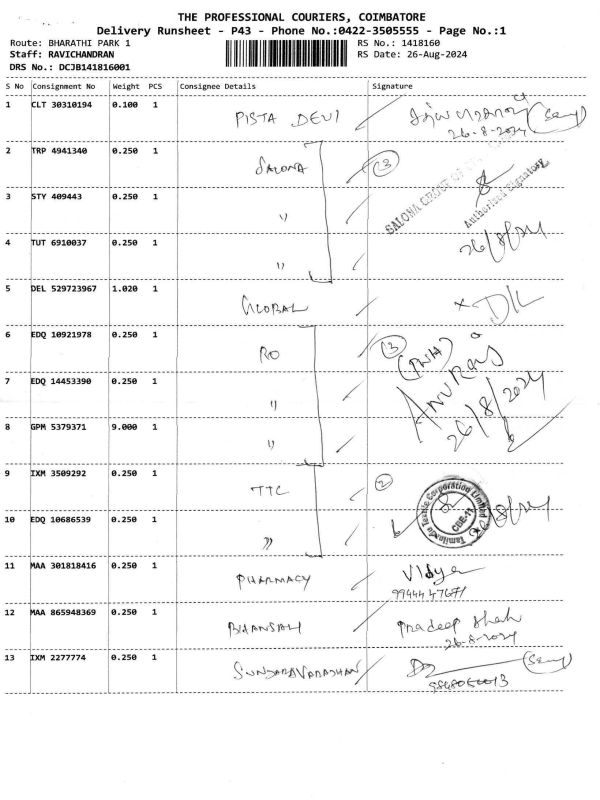 THE PROFESSIONAL COURIERS, COIMBATORE
Delivery Runsheet - P43 - Phone No.:0422-3505555 - Page No.:1
Route: BHARATHI PARK 1 RS No.: 1418160
Staff: RAVICHANDRAN RS Date: 26-Aug-2024
DRS No.: DCJB141816001
S No Consignment No Weight PCS Consignee Details Signature
1 CLT 30310194 0.100 1 PISTA DEVI
26-8-2024
2 TRP 4941340 0.250 1 SALONA 3
SALONA Authorised Signatory
3 STY 409443 0.250 1 "
4 TUT 6910037 0.250 1 " 26/8/24
5 DEL 529723967 1.020 1 GLOBAL
6 EDQ 10921978 0.250 1 RO 3
ANURAJ
7 EDQ 14453390 0.250 1 " 26/8/2024
8 GPM 5379371 9.000 1 "
9 IXM 3509292 0.250 1 TTC 2
Tamilnadu Textile Corporation Limited CBE-11
10 EDQ 10686539 0.250 1 "
11 MAA 301818416 0.250 1 PHARMACY Vidya
99444 47671
12 MAA 865948369 0.250 1 BHANSALI Pradeep Shah
26-8-2024
13 IXM 2277774 0.250 1 SUNDARAVARADHAN